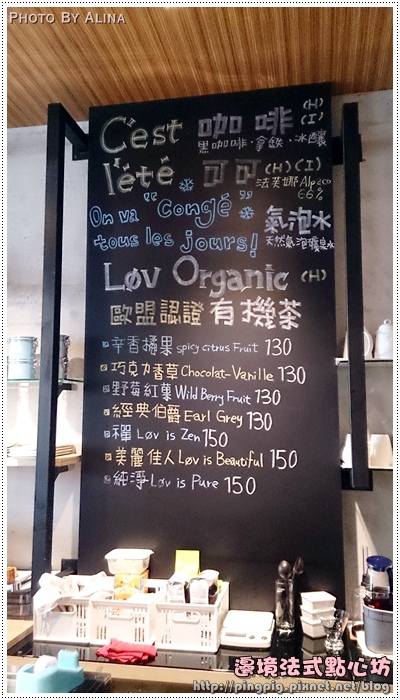 PHOTO BY ALINA
C'est 咖啡 (H) (I)
黑咖啡·拿鐵·冰釀
l'été 可可 (H)(I)
法芙娜 Alpaco 66%
On va "Congé" 氣泡水
tous les jours! 天然氣泡礦泉水
Løv Organic (H)
歐盟認證 有機茶
辛香橘果 spicy citrus Fruit 130
巧克力香草 Chocolat-Vanille 130
野莓紅菓 Wild Berry Fruit 130
經典伯爵 Earl Grey 130
禪 Løv is Zen 150
美麗佳人 Løv is Beautiful 150
純淨 Løv is Pure 150
邊境法式點心坊
http://pingpig.pixnet.net/blog